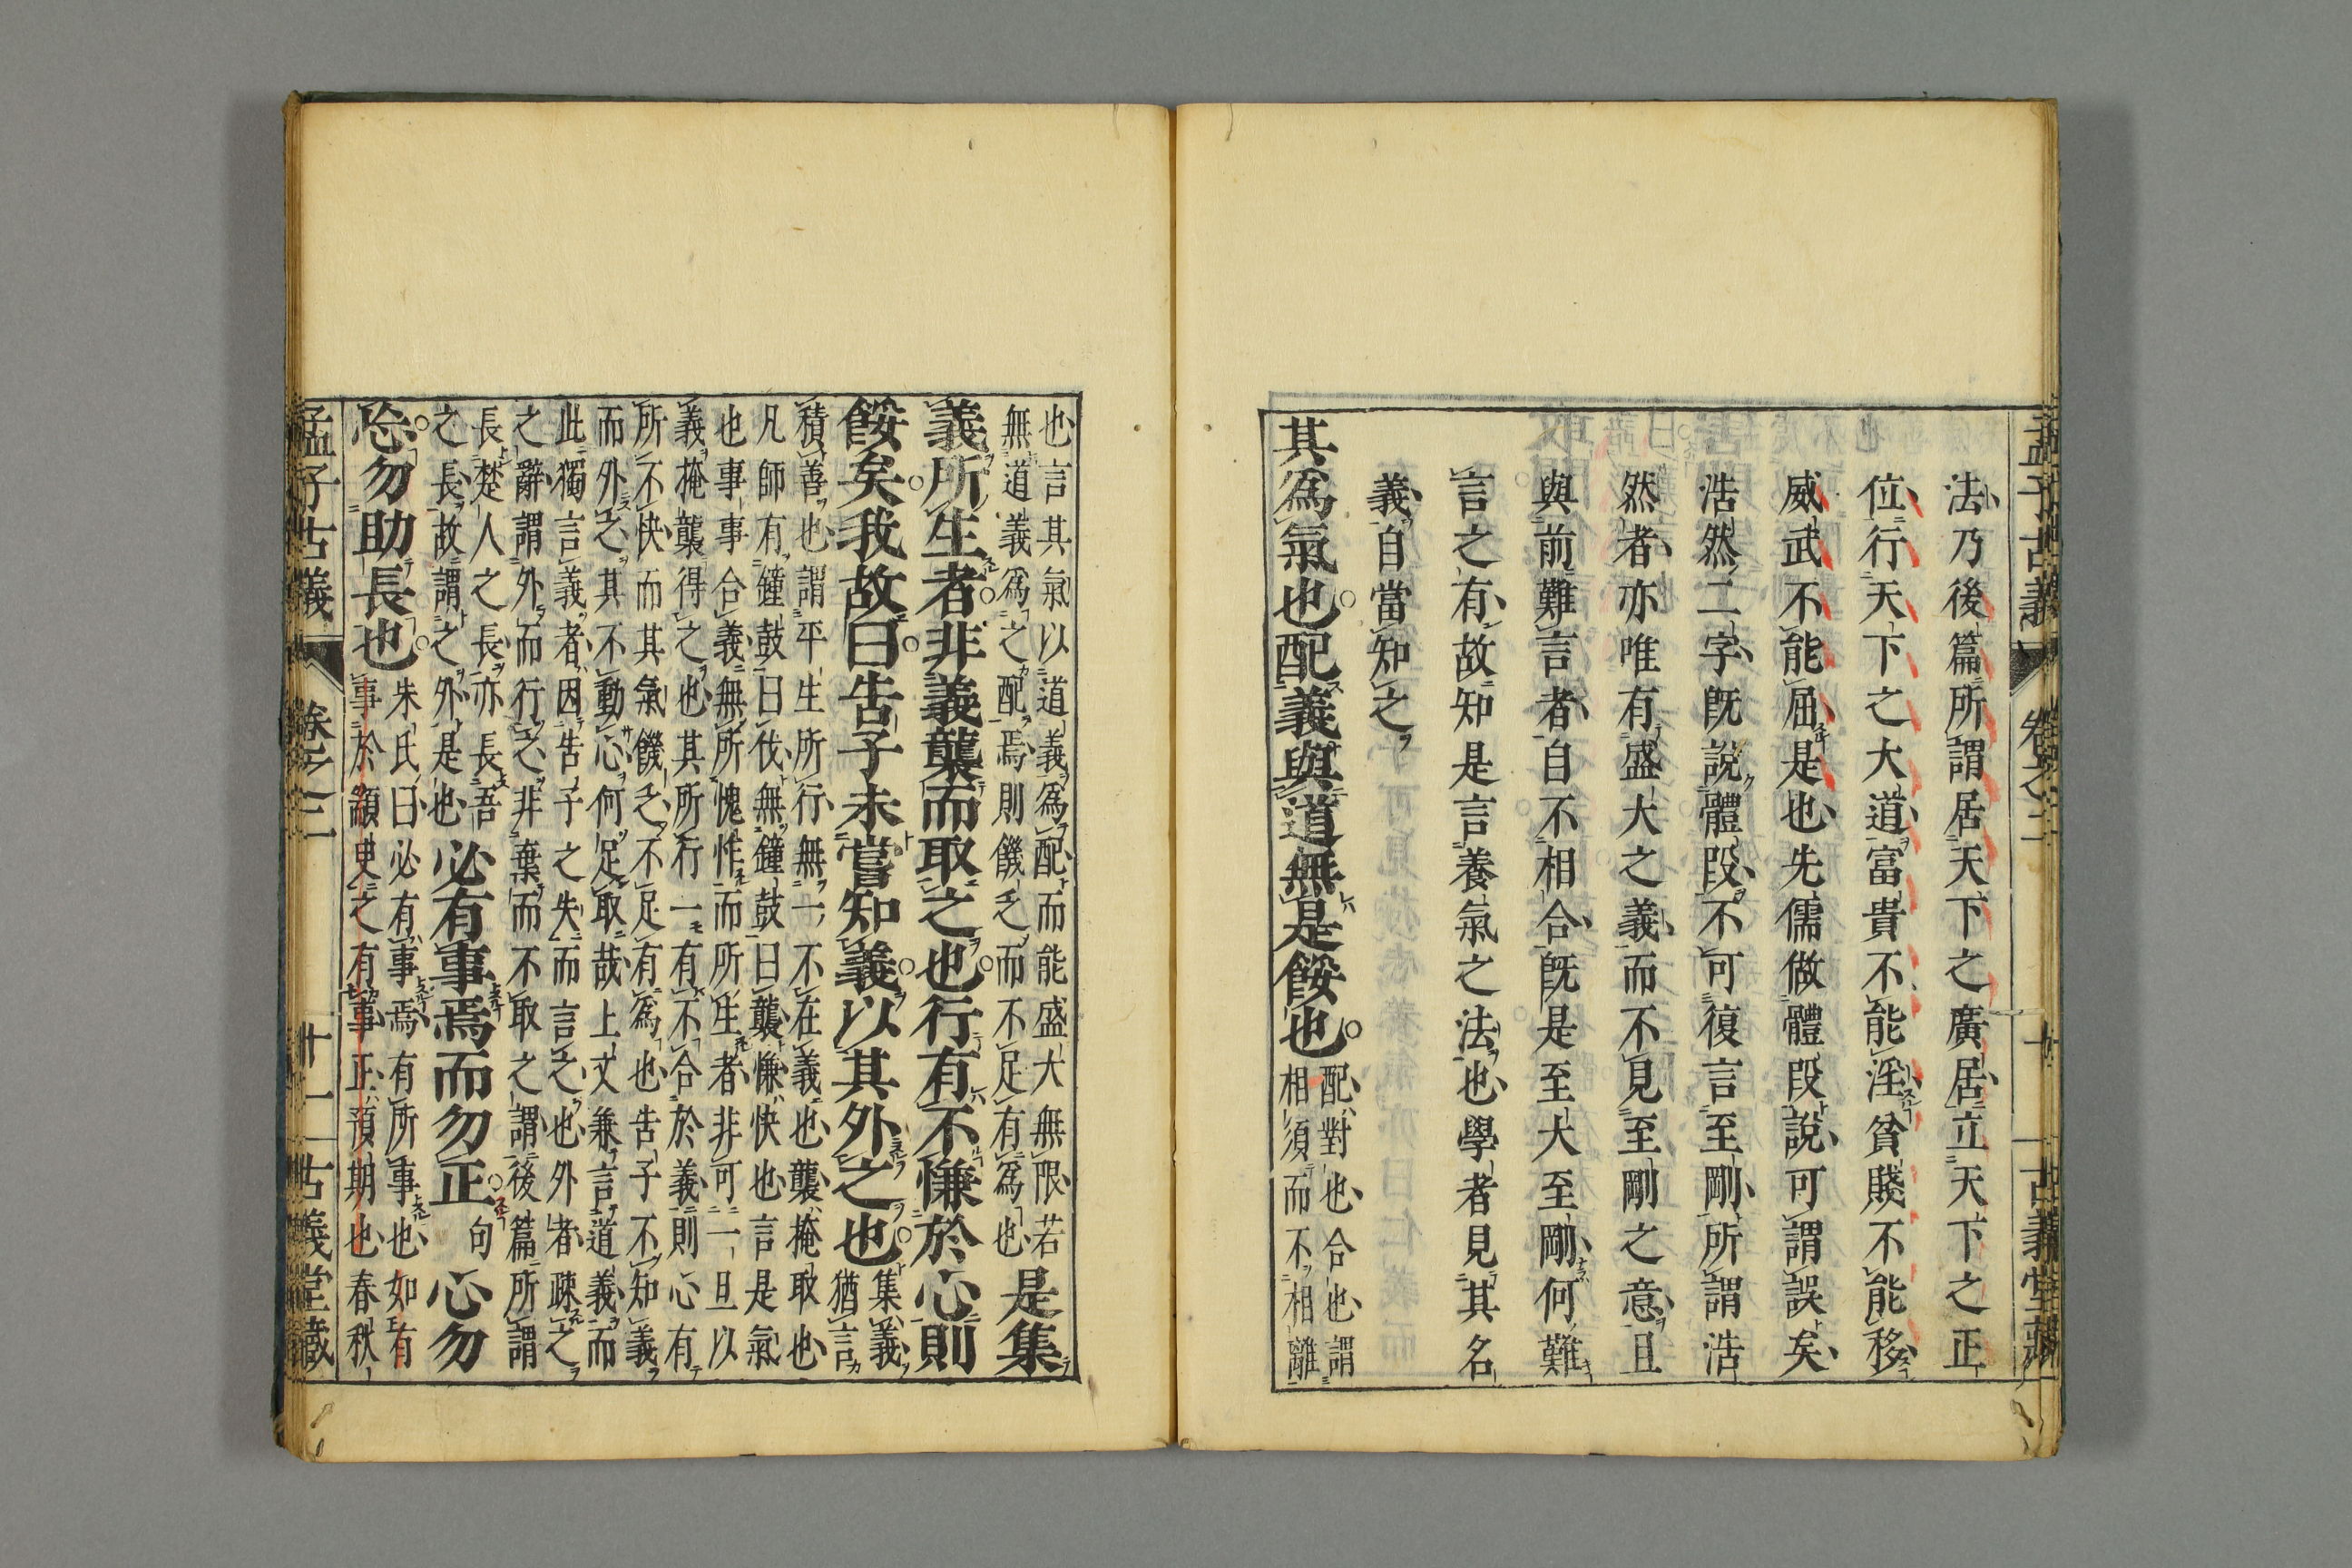 孟子古義 卷之二 十 古義堂藏
法乃後篇所謂居天下之廣居立天下之正
位行天下之大道富貴不能淫貧賤不能移
威武不能屈是也先儒做體段說可謂誤矣
浩然二字既說體段不可復言至剛所謂浩
然者亦唯有盛大之義而不見至剛之意且
與前難言者自不相合既是至大至剛何難
言之有故知是言養氣之法也學者見其名
義自當知之
其爲氣也配義與道無是餒也 配對也合也謂
相須而不相離
也言其氣以道義爲配而能盛大無限若
無道義爲之配焉則饑乏而不足有爲也 是集
義所生者非義襲而取之也行有不慊於心則
餒矣我故曰告子未嘗知義以其外之也 集義猶言
積善也謂平生所行無一不在義也襲掩取也
凡師有鐘鼓曰伐無鐘鼓曰襲慊快也言是氣
也事事合義無所愧怍而所生者非可一旦以
義掩襲得之也其所行一有不合於義則心有
所不快而其氣饑乏不足有爲也告子不知義
而外之其不動心何足取哉上文兼言道義而
此獨言義者因告子之失而言之也外者疎之
之辭謂外而行之非棄而不取之謂後篇所謂
長楚人之長亦長吾
之長故謂之外是也 必有事焉而勿正 句 心勿
忘勿助長也 朱氏曰必有事焉有所事也如有
事於顓臾之有事正預期也春秋
孟子古義 卷之二 十一 古義堂藏